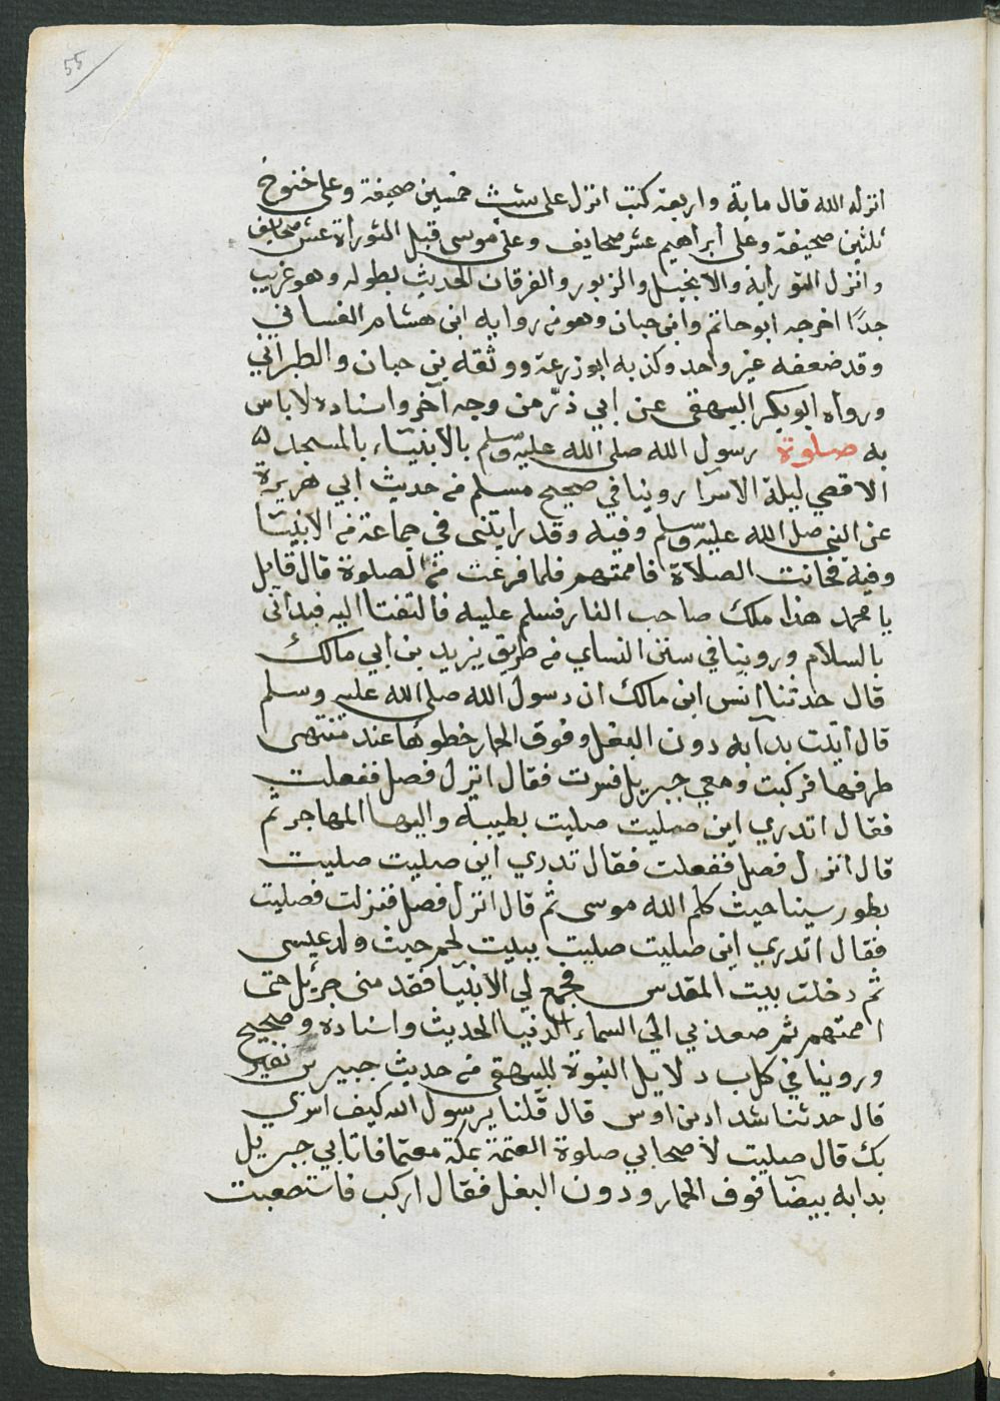 55
انزله الله قال ماية واربعة كتب انزل على شيث خمسين صحيفة وعلى خنوخ
ثلثين صحيفة وعلى ابراهيم عشر صحايف وعلى موسى قبل التوراة عشر صحايف
وانزل التوراية والانجيل والزبور والفرقان الحديث بطوله وهو غريب
جدًا اخرجه ابو حاتم وابن حبان وهو من رواية ابن هشام الغساني
وقد ضعفه غير واحد وكذبه ابو زرعة ووثقه بن حبان والطبراني
ورواه ابو بكر البيهقي عن ابي ذر من وجه آخر واسناده لاباس
به صلوة رسول الله صلى الله عليه وسلم بالانبياء بالمسجد
الاقصي ليلة الاسرآ روينا في صحيح مسلم من حديث ابي هريرة
عن النبي صلى الله عليه وسلم وفيه وقد رايتنى في جماعة من الانبيا
وفيه فحانت الصلاة فاممتهم فلما فرغت من الصلوة قال قايل
يا محمد هذا ملك صاحب النار فسلم عليه فالتفتا اليه فبدأنى
بالسلام وروينا في سنن النساي من طريق يزيد بن ابي مالك
قال حدثنا انس ابن مالك ان رسول الله صلى الله عليه وسلم
قال اتيت بدآبه دون البغل وفوق الحمار خطوتها عند منتهى
طرفها فركبت ومعي جبريل فسرت فقال انزل فصل ففعلت
فقال اتدري اين صليت صليت بطيبة واليها المهاجر ثم
قال انزل فصل ففعلت فقال تدري اين صليت صليت
بطور سينا حيث كلم الله موسى ثم قال انزل فصل فنزلت فصليت
فقال اتدري اين صليت صليت ببيت لحم حيث ولد عيسى
ثم دخلت بيت المقدس فجمع لي الانبيا فقدمنى جبرئيل حتى
اممتهم ثم صعد بي الي السماء الدنيا الحديث واسناده صحيح
وروينا في كتاب دلايل النبوة للبيهقي من حديث جبير بن نفير
قال حدثنا شداد بن اوس قال قلنا يرسول الله كيف اسري
بك قال صليت لأصحابي صلوة العتمة بمكة معتما فاتابي جبريل
بدابه بيضآ فوق الحمار ودون البغل فقال اركب فاستصعبت